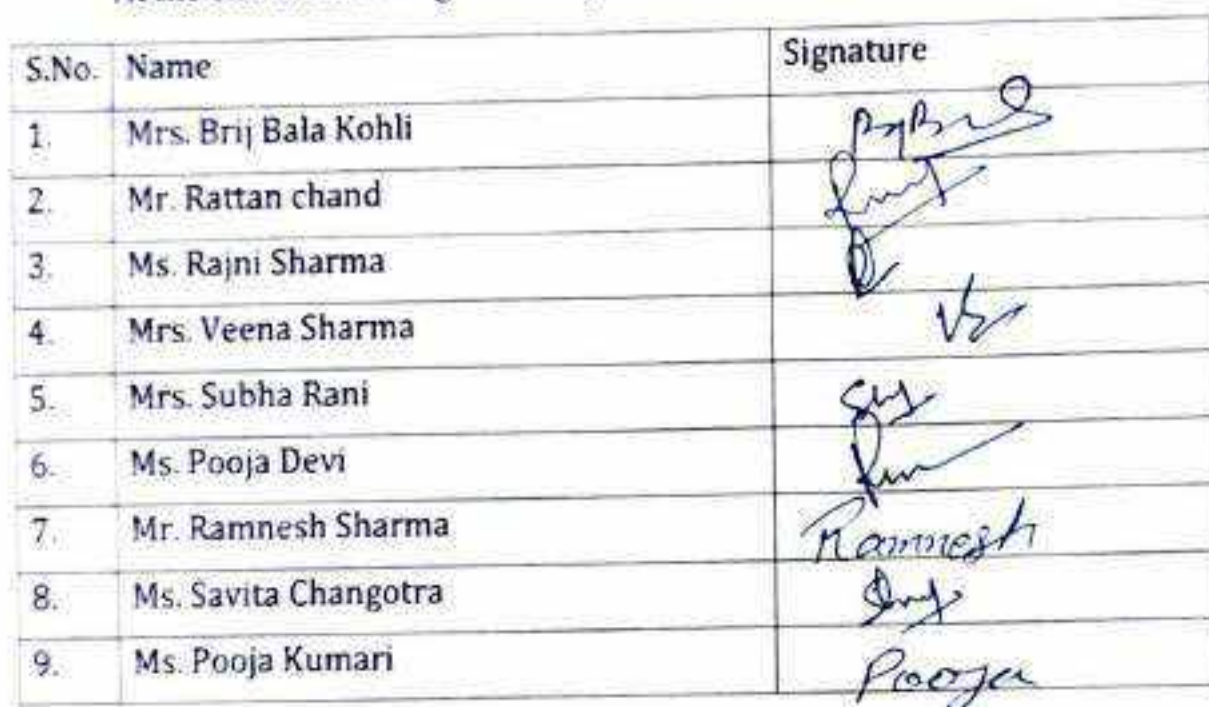 S.No. Name Signature
1. Mrs. Brij Bala Kohli
2. Mr. Rattan chand
3. Ms. Rajni Sharma
4. Mrs. Veena Sharma
5. Mrs. Subha Rani
6. Ms. Pooja Devi
7. Mr. Ramnesh Sharma Ramnesh
8. Ms. Savita Changotra
9. Ms. Pooja Kumari Pooja